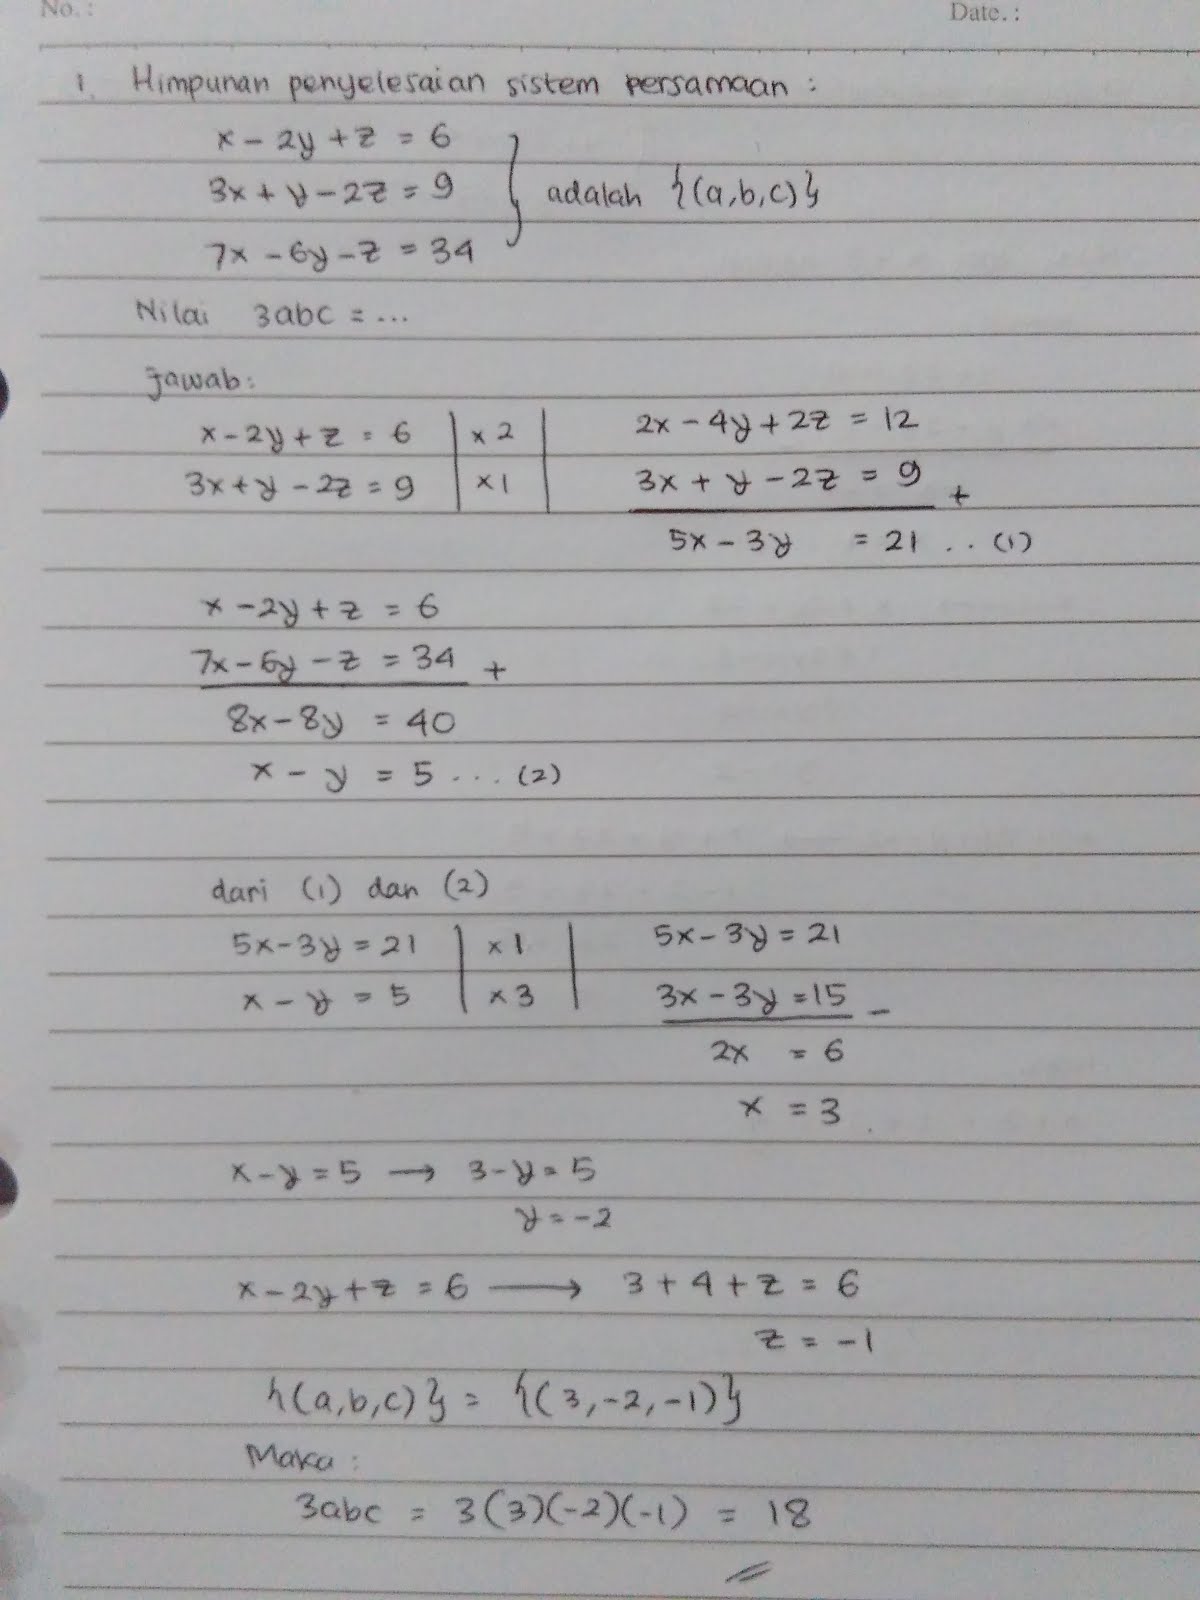 No. :
Date. :
1. Himpunan penyelesaian sistem persamaan :
x - 2y + z = 6
3x + y - 2z = 9 } adalah {(a,b,c)}
7x - 6y - z = 34
Nilai 3abc = ...
Jawab:
x - 2y + z = 6 | x 2 | 2x - 4y + 2z = 12
3x + y - 2z = 9 | x 1 | 3x + y - 2z = 9 +
5x - 3y = 21 .. (1)
x - 2y + z = 6
7x - 6y - z = 34 +
8x - 8y = 40
x - y = 5 ... (2)
dari (1) dan (2)
5x - 3y = 21 | x 1 | 5x - 3y = 21
x - y = 5 | x 3 | 3x - 3y = 15 -
2x = 6
x = 3
x - y = 5 → 3 - y = 5
y = -2
x - 2y + z = 6 → 3 + 4 + z = 6
z = -1
{(a,b,c)} = {(3,-2,-1)}
Maka :
3abc = 3(3)(-2)(-1) = 18